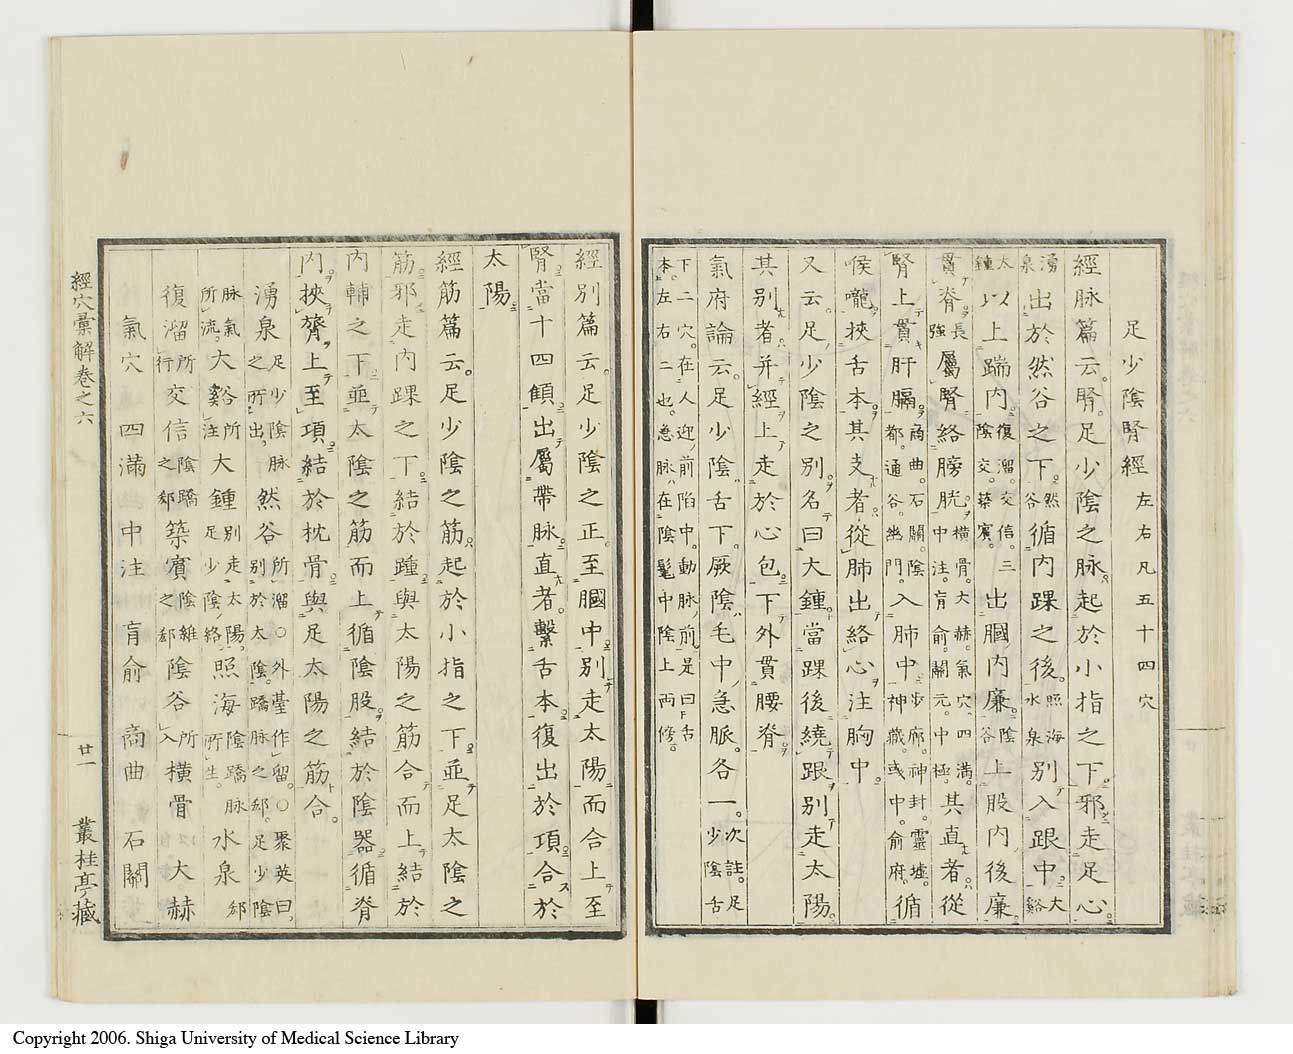 足少陰腎經 左右凡五十四穴
經脉篇云。腎。足少陰之脉。起於小指之下。邪走足心。
湧泉出於然谷之下。然谷循内踝之後。照海水泉別入跟中。大谿
太鍾以上踹内。復溜。交信。三陰交。築賓。出膕内廉。陰谷上股内後廉。
貫脊。長強屬腎絡膀胱。横骨。大赫。氣穴。四満。中注。肓俞。關元。中極。其直者。從
腎上貫肝膈。商曲。石關。陰都。通谷。幽門。入肺中。歩廊。神封。靈墟。神藏。或中。俞府。循
喉嚨挾舌本。其支者。從肺出絡心。注胸中。
又云。足少陰之別。名曰大鍾。當踝後繞跟別走太陽。
其別者。并經上走於心包。下外貫腰脊。
氣府論云。足少陰舌下。厥陰毛中急脈。各一。次註。足少陰舌
下二穴。在人迎前陷中。動脉前。是曰舌本。左右二也。急脉。在陰髦中陰上兩傍。
經別篇云。足少陰之正。至膕中別走太陽而合上至
腎當十四顀。出屬帶脉。直者。繫舌本。復出於項合於
太陽
經筋篇云。足少陰之筋。起於小指之下。並足太陰之
筋邪走内踝之下。結於踵。與太陽之筋合而上結於
内輔之下。並太陰之筋而上循陰股。結於陰器。循脊
内。挾膂。上至項。結於枕骨。與足太陽之筋合。
湧泉 足少陰脉之所出。 然谷 所溜〇外臺作留。〇聚英曰。別於太陰。蹻脉之郄。足少陰
脉氣所流。 大谿 谷所注 大鍾 別走太陽。足少陰絡。 照海 陰蹻脉所生。 水泉 郄
復溜 所行 交信 陰蹻之郄 築賓 陰維之郄 陰谷 所入 横骨 大赫
氣穴 四滿 中注 肓俞 商曲 石關
經穴彙解卷之六 廿一 叢桂亭藏
Copyright 2006. Shiga University of Medical Science Library